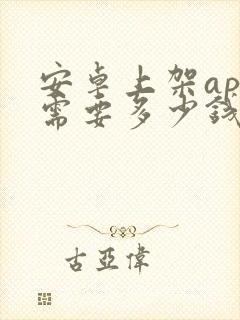 安卓上架ap
需要多少钱
古亞偉